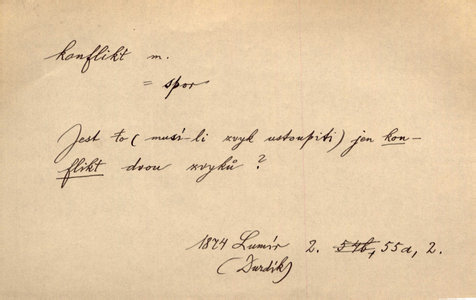 konflikt m.
= spor
Jest to (musí-li zvyk ustoupiti) jen kon-
flikt dvou zvyků?
1874 Lumír 2. 54b, 55a, 2.
(Durdík)